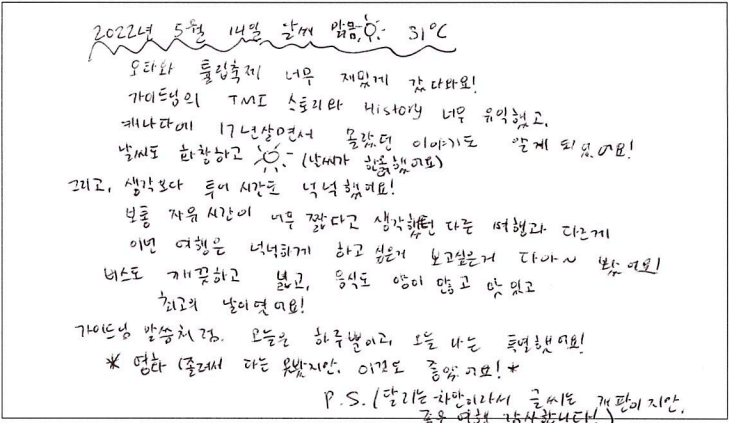 2022년 5월 14일 날씨 맑음 31°C
오타와 튤립축제 너무 재밌게 갔다와요!
가이드님의 TMI 스토리와 History 너무 유익했고,
캐나다에 17년살면서 몰랐던 이야기도 알게 되었어요!
날씨도 화창하고 (날씨가 한몫했어요)
그리고, 생각보다 투어 시간은 넉넉했어요!
보통 자유시간이 너무 짧다고 생각했던 다른 여행과 다르게
이번 여행은 넉넉하게 하고싶은거 보고싶은거 다아~ 봤어요!
버스도 깨끗하고 넓고, 음식도 양이 많고 맛있고
최고의 날이였어요!
가이드님 말씀처럼. 오늘은 하루뿐이고, 오늘 나는 특별했어요!
* 영화 (졸려서 다는 못봤지만. 이것도 좋았어요! *
P.S. (달리는 차안이라서 글씨는 개판이지만.
좋은 여행 감사합니다!)